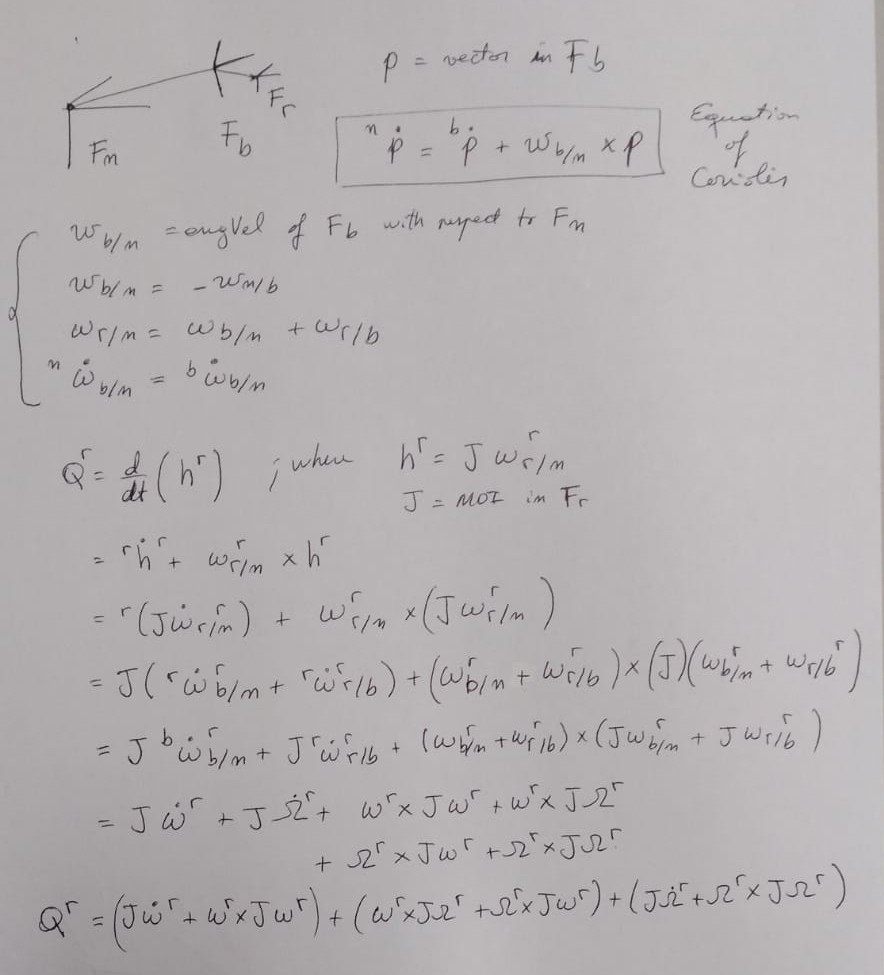 p = vector in Fb
Fn Fb Fr
ⁿṗ = ᵇṗ + ω_b/n × p
Equation
of
Coriolis
ω_b/n = angVel of Fb with respect to Fn
ω_b/n = - ω_n/b
ω_r/n = ω_b/n + ω_r/b
ⁿω̇_b/n = ᵇω̇_b/n
Qʳ = d/dt (hʳ) ; where hʳ = J ωʳ_r/n
J = MOI in Fr
= ʳḣʳ + ωʳ_r/n × hʳ
= ʳ(Jω̇ʳ_r/n) + ωʳ_r/n × (Jωʳ_r/n)
= J(ʳω̇ʳ_b/n + ʳω̇ʳ_r/b) + (ωʳ_b/n + ωʳ_r/b) × (J)(ωʳ_b/n + ω_r/bʳ)
= J ᵇω̇ʳ_b/n + J ʳω̇ʳ_r/b + (ωʳ_b/n + ωʳ_r/b) × (Jωʳ_b/n + Jω_r/bʳ)
= J ω̇ʳ + J Ω̇ʳ + ωʳ × Jωʳ + ωʳ × JΩʳ
+ Ωʳ × Jωʳ + Ωʳ × JΩʳ
Qʳ = (Jω̇ʳ + ωʳ × Jωʳ) + (ωʳ × JΩʳ + Ωʳ × Jωʳ) + (JΩ̇ʳ + Ωʳ × JΩʳ)